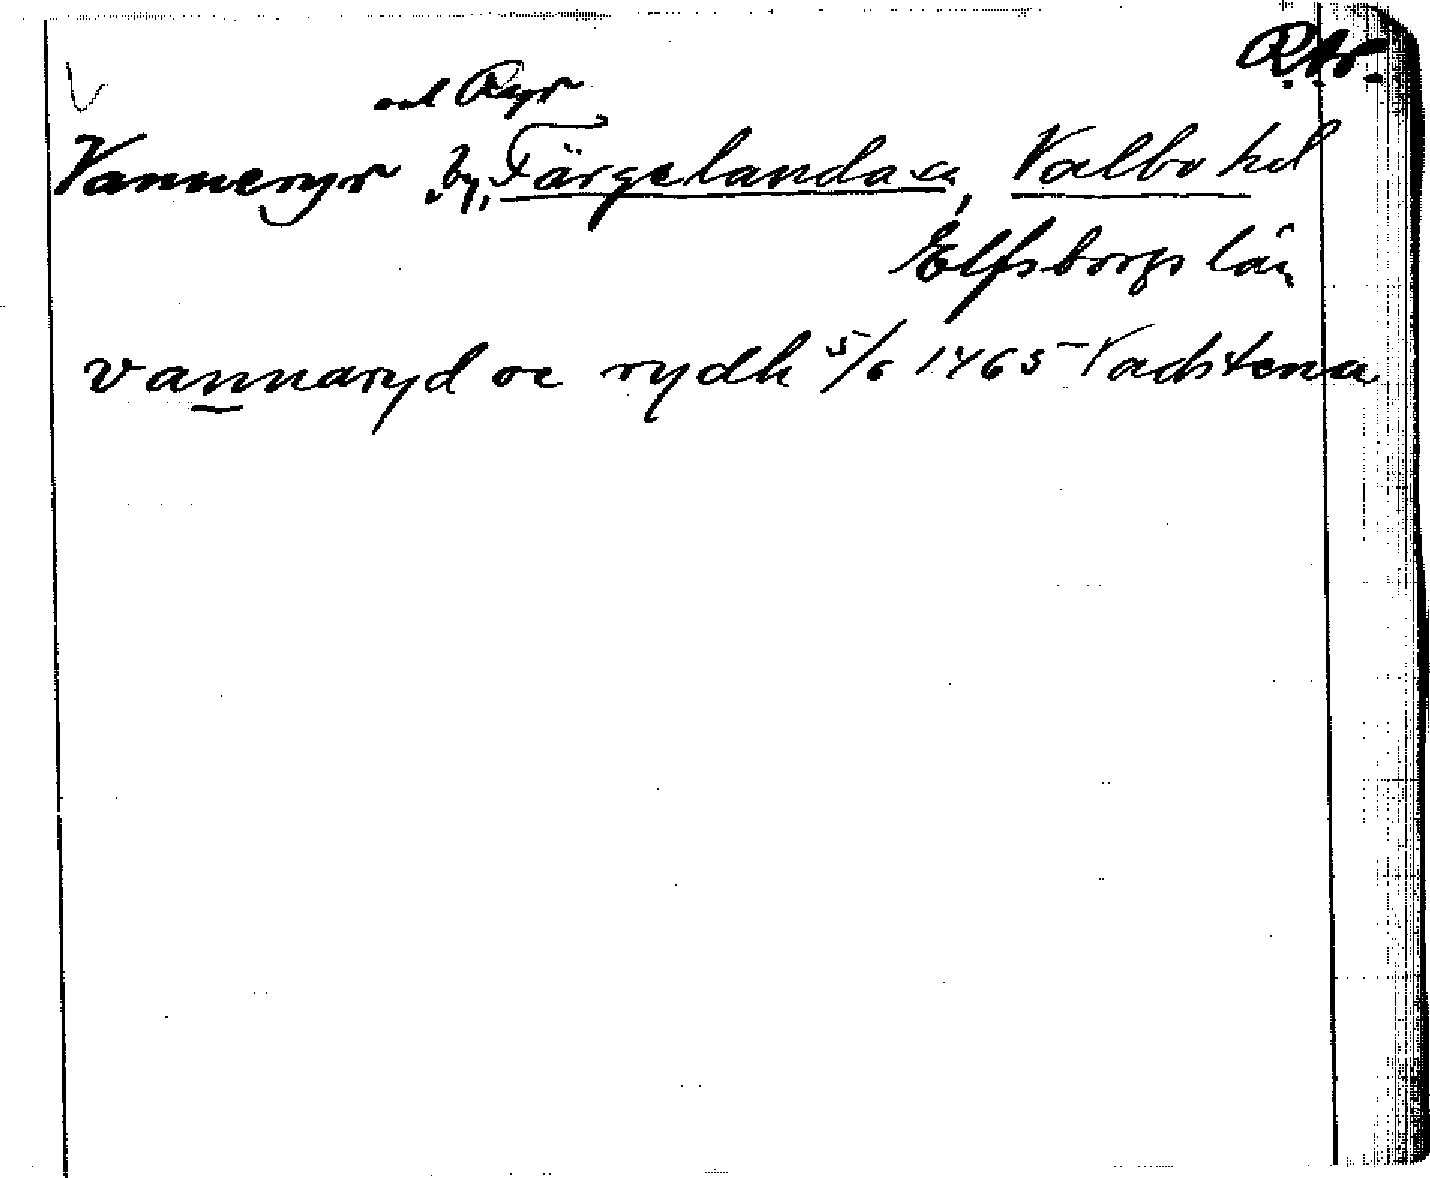 R.A.
och Ryr
Vanneryr by, Färgelanda sn, Valbo hd
Elfsborgs län
vannaryd oc rydh 5/6 1465 Vadstena